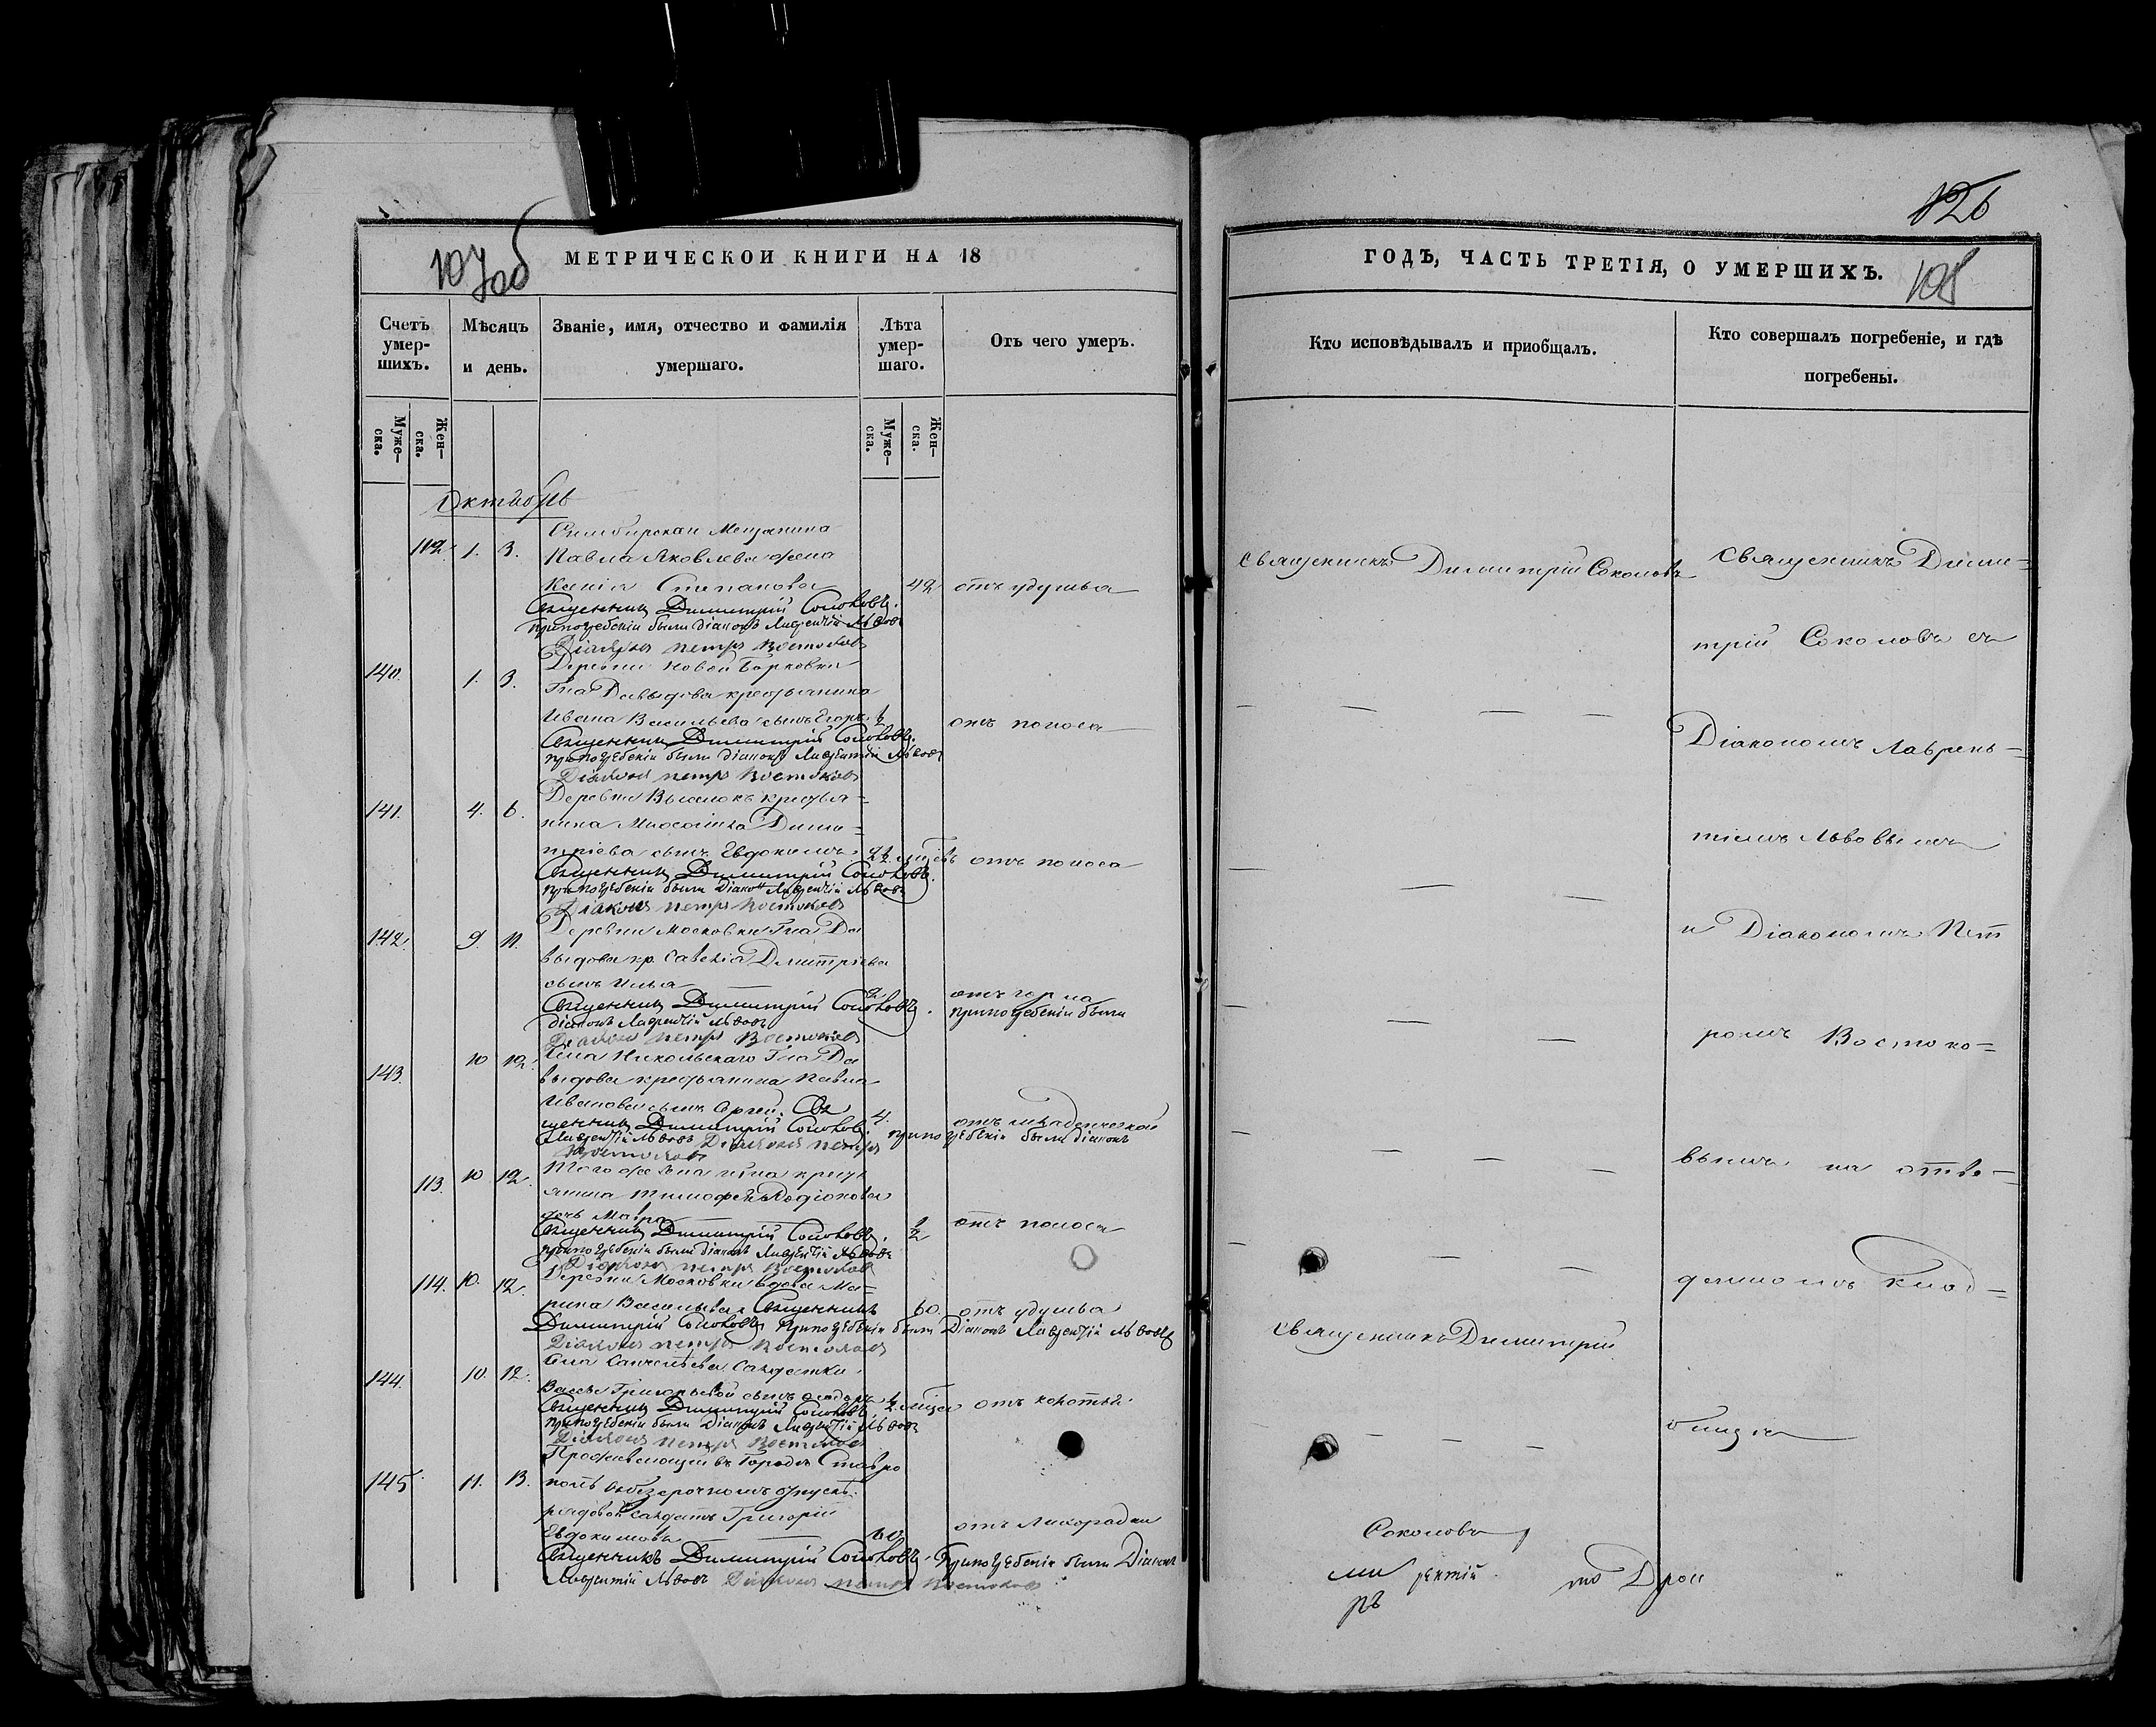 107об
МЕТРИЧЕСКОЙ КНИГИ НА 18
Счетъ умер-шихъ.
Мѣсяцъ и день.
Званіе, имя, отчество и фамилія умершаго.
Лѣта умер-шаго.
Отъ чего умеръ.
Муже-ска.
Жен-ска.
Муже-ска.
Жен-ска.
Октябрь
Симбирскаи Мещанина
112. 1. 3. Павла Яковлева жена
Ксенія Степанова 42 отъ удушья
Священникъ Димитрій Соколовъ.
при погребеніи были діаконъ Лаврентій Львовъ
Діаконъ Петръ Востоковъ
Деревни Новой Борковки
140. 1. 3. Гна Давыдова крестьянина
Ивана Васильева сынъ Егоръ отъ поноса
Священникъ Димитрій Соколовъ.
при погребеніи были діаконъ Лаврентій Львовъ
Діаконъ Петръ Востоковъ
141. 4. 6. Деревни Выселокъ крестья=
нина Димит=
ріева сынъ Евдокимъ отъ поноса
Священникъ Димитрій Соколовъ.
при погребеніи были Діаконъ Лаврентій Львовъ
Діаконъ Петръ Востоковъ
142. 9. 11. Деревни Московки Гна Да
выдова кр. Савелія Димитріева
сынъ Илья
Священникъ Димитрій Соколовъ. при погребеніи были
діаконъ Лаврентій Львовъ
Діаконъ Петръ Востоковъ
143. 10 12. Села Никольскаго Гна Да
выдова крестьянина Павла
Иванова сынъ Сергей. Свя 4. отъ младенческой
щенникъ Димитрій Соколовъ. при погребеніи были діаконъ
Лаврентій Львовъ Діаконъ Петръ
Востоковъ
113. 10 12. Того же села гна крестья
янина Тимофея Родіонова
дочь Мавра ½ отъ поноса
Священникъ Димитрій Соколовъ.
при погребеніи были діаконъ Лаврентій Львовъ
Діаконъ Петръ Востоковъ
114. 10. 12. Деревни Московки вдова Ма=
рина Васильева Священникъ 60. отъ удушья
Димитрій Соколовъ, при погребеніи были Діаконъ Лаврентій Львовъ
Діаконъ Петръ Востоковъ
144. 10. 12. Села Санчелѣева Салдатки
Григорьевой сынъ Федоръ
Священникъ Димитрій Соколовъ.
при погребеніи были Діаконъ Лаврентій Львовъ
Діаконъ Петръ Востоковъ
Проживающій въ Городѣ Ставро
145. 11. 13. полѣ въ безсрочномъ отпускѣ
рядовой салдатъ Григорій
Евдокимовъ отъ лихорадки
Священникъ Димитрій Соколовъ. При погребеніи были Діаконъ
Лаврентій Львовъ Діаконъ Петръ Востоковъ
126
ГОДЪ, ЧАСТЬ ТРЕТІЯ, О УМЕРШИХЪ.
108
Кто исповѣдывалъ и пріобщалъ.
Кто совершалъ погребеніе, и гдѣ погребены.
Священникъ Димитрій Соколовъ
Священникъ Димитрій
Соколовъ
Священникъ Дими=
трій Соколовъ съ
Діакономъ Лаврень=
тіемъ Львовымъ
и Діакономъ Пет
ромъ Востоко=
вымъ на отве=
денномъ клад=
бищѣ